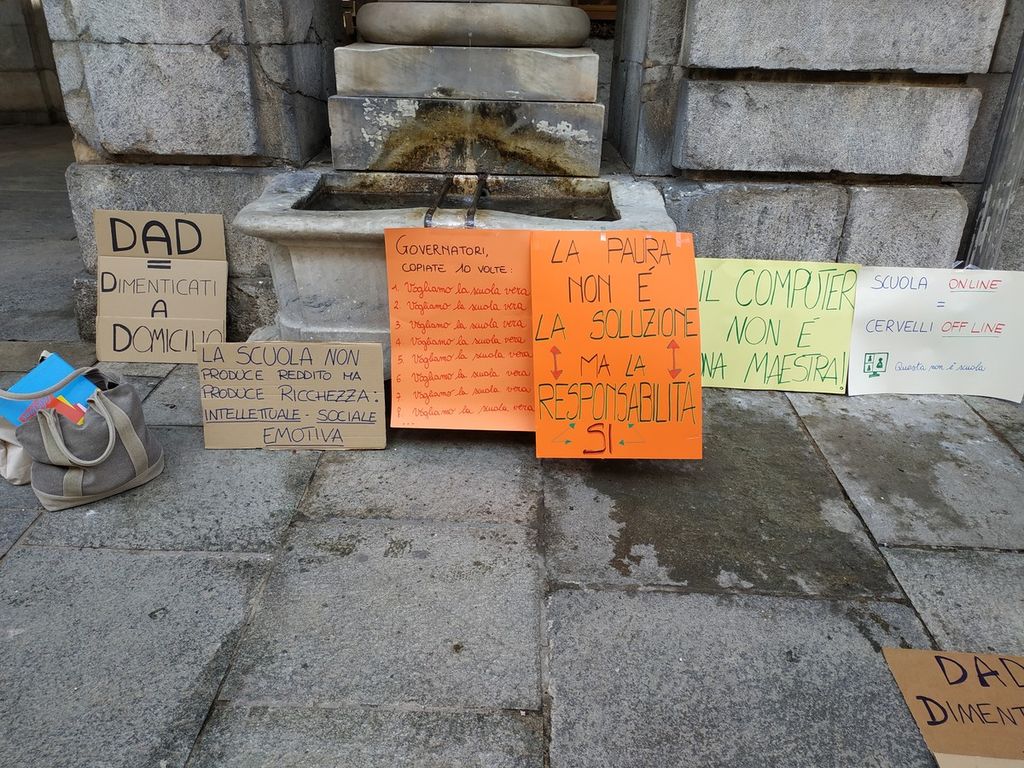 DAD
=
DIMENTICATI
A
DOMICILIO
LA SCUOLA NON
PRODUCE REDDITO MA
PRODUCE RICCHEZZA:
INTELLETTUALE - SOCIALE
EMOTIVA
GOVERNATORI,
COPIATE 10 VOLTE:
1. Vogliamo la scuola vera
2. Vogliamo la scuola vera
3. Vogliamo la scuola vera
4. Vogliamo la scuola vera
5 Vogliamo la scuola vera
6 Vogliamo la scuola vera
7 Vogliamo la scuola vera
8 Vogliamo la scuola vera
...
LA PAURA
NON É
LA SOLUZIONE
MA LA
RESPONSABILITÁ
SI
IL COMPUTER
NON É
UNA MAESTRA!
SCUOLA ONLINE
=
CERVELLI OFF LINE
Questa non è scuola
DAD
DIMENT